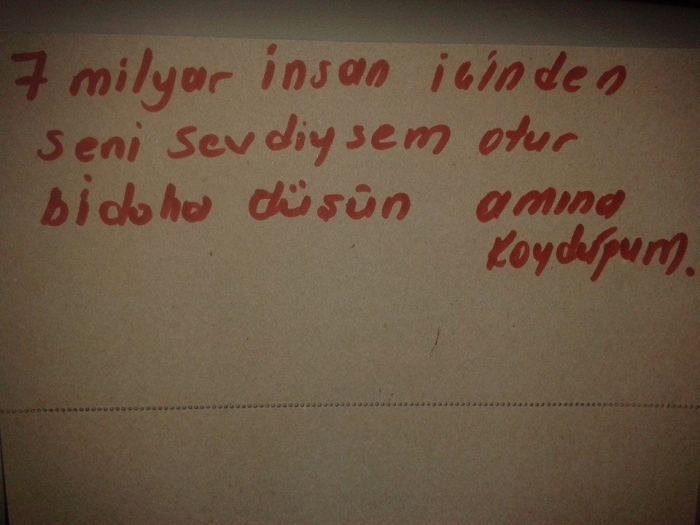 7 milyar insan içinden
seni sevdiysem otur
bidaha düşün amına
koyduğum.